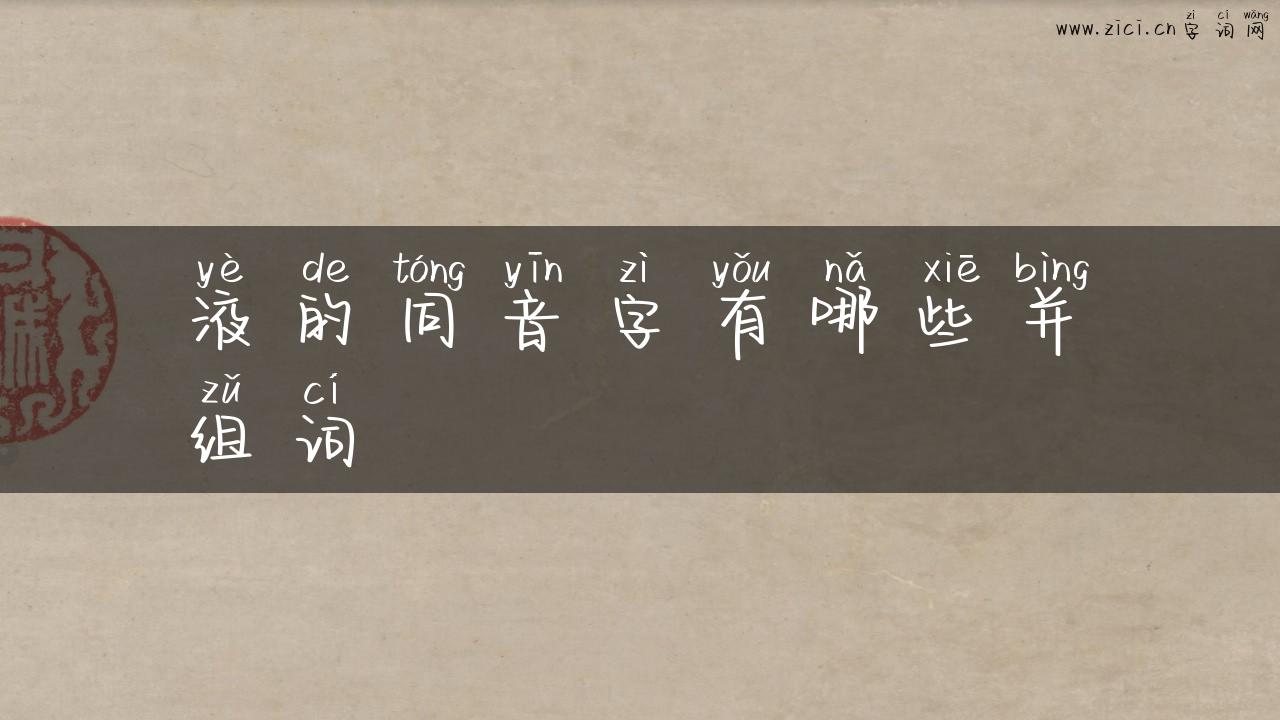 zì cí wǎng
www.zici.cn 字词网
yè de tóng yīn zì yǒu nǎ xiē bìng
液的同音字有哪些并
zǔ cí
组词